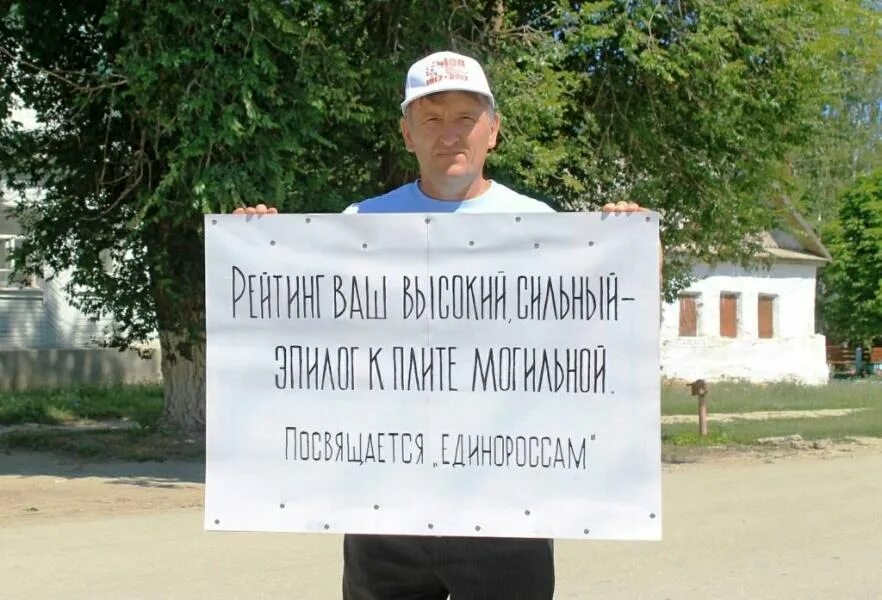 100
1917-2017
РЕЙТИНГ ВАШ ВЫСОКИЙ, СИЛЬНЫЙ-
ЭПИЛОГ К ПЛИТЕ МОГИЛЬНОЙ.
ПОСВЯЩАЕТСЯ „ЕДИНОРОССАМ"